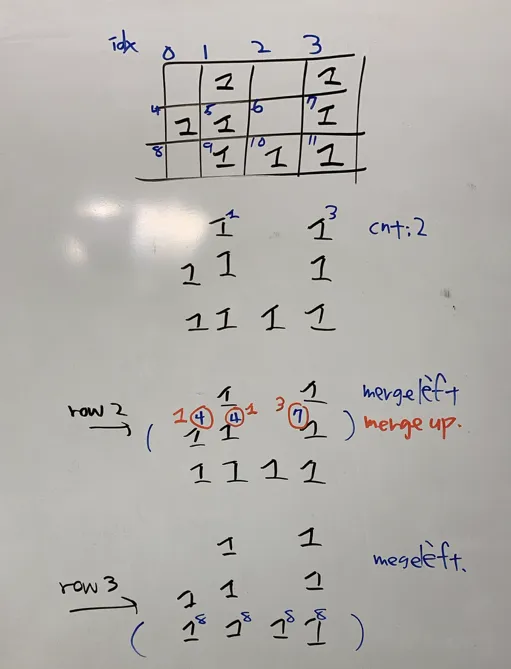 idx 0 1 2 3
1 1
4 1 5 1 6 7 1
8 9 1 10 1 11 1
1 1 1 3 cnt: 2
1 1 1
1 1 1 1
1 1 mergeleft
row 2 1 4 4 1 3 7 merge up.
( 1 1 1 )
1 1 1 1
1 1
megeleft.
row 3 1 1 1
( 1 8 1 8 1 8 1 8 )